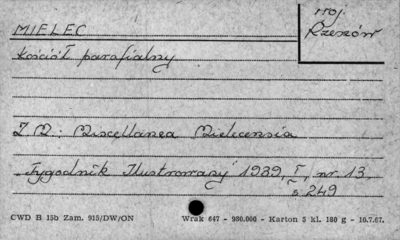 Woj.
Rzeszów
MIELEC
Kościół parafialny
Z.M.: Miscellanea Mielecensia
"Tygodnik Ilustrowany" 1939, I, nr 13,
s 249
CWD B 15b Zam. 915/DW/ON Wrak 647 - 980.000 - Karton 3 kl. 180 g - 16.7.67.